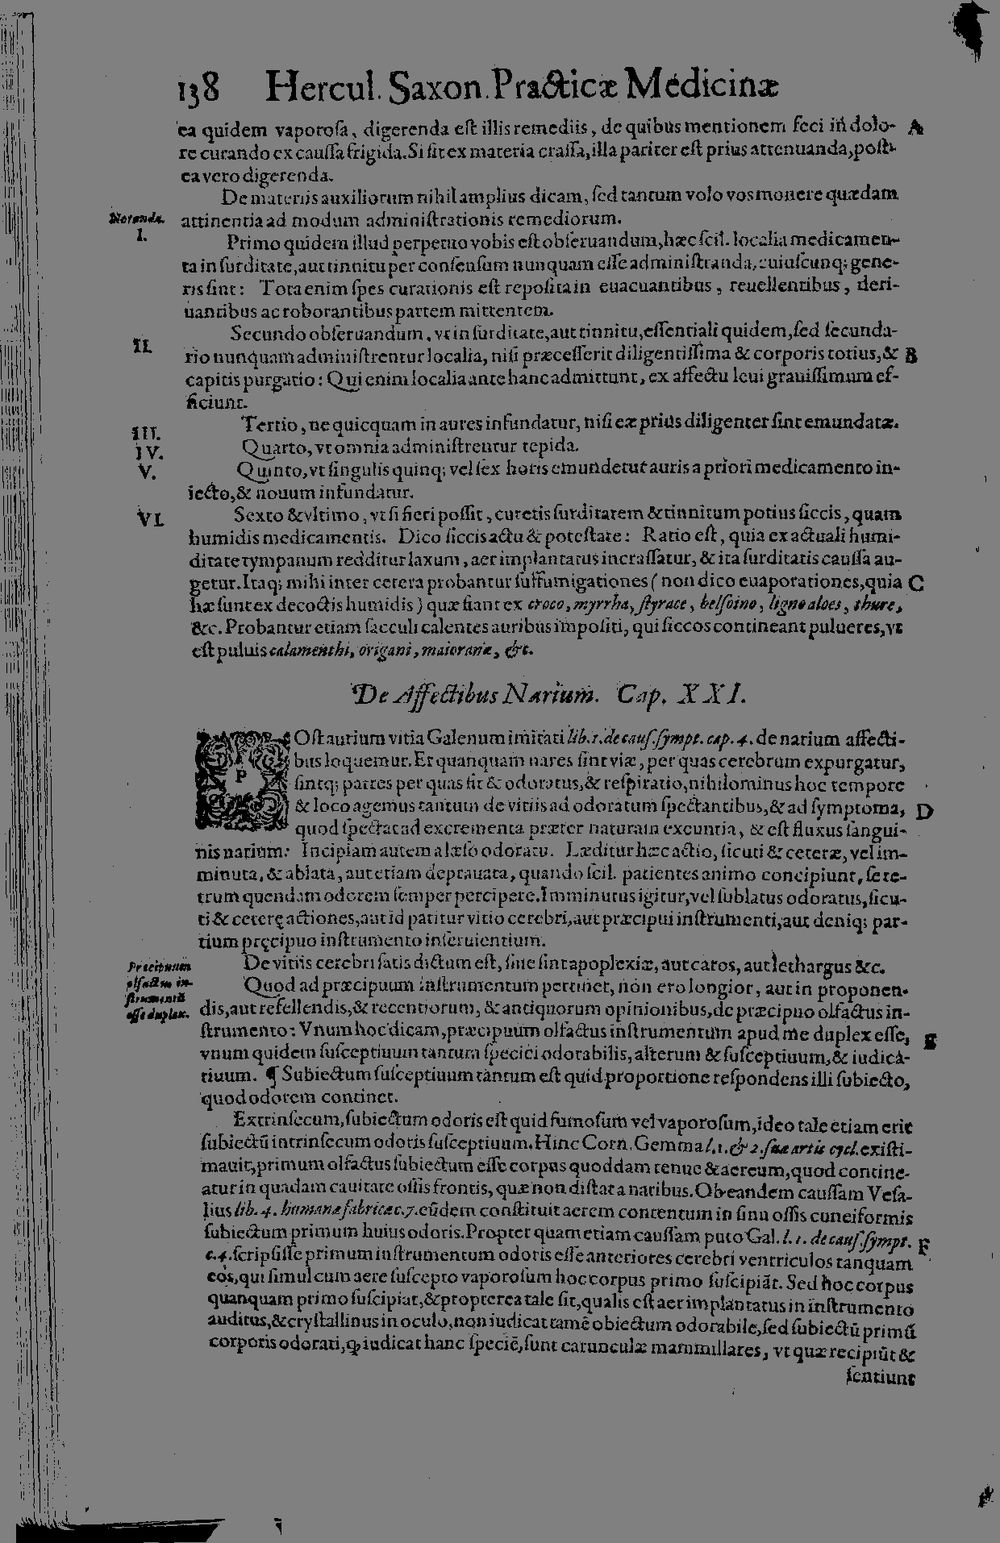 138 Hercul. Saxon. Practicæ Medicinæ
ea quidem vaporoſa, digerenda eſt illis remediis, de quibus mentionem feci in dolo- A
re curando ex cauſſa frigida. Si ſit ex materia craſſa, illa pariter eſt prius attenuanda, poſt-
ea vero digerenda.
De materiis auxiliorum nihil amplius dicam, ſed tantum volo vos monere quædam
Notanda. attinentia ad modum adminiſtrationis remediorum.
I. Primo quidem illud perpetuo vobis eſt obſeruandum, hæc ſcil. localia medicamen-
ta in ſurditate, aut tinnitu per conſenſum nunquam eſſe adminiſtranda, cuiuſcunq; gene-
ris ſint: Tota enim ſpes curationis eſt repoſita in euacuantibus, reuellentibus, deri-
uantibus ac roborantibus partem mittentem.
II. Secundo obſeruandum, vt in ſurditate, aut tinnitu, eſſentiali quidem, ſed ſecunda-
rio nunquam adminiſtrentur localia, niſi præceſſerit diligentiſſima & corporis totius, & B
capitis purgatio: Qui enim localia ante hanc admittunt, ex affectu leui grauiſſimum ef-
ficiunt.
III. Tertio, ne quicquam in aures infundatur, niſi eæ prius diligenter ſint emundatæ.
IV. Quarto, vt omnia adminiſtrentur tepida.
V. Quinto, vt ſingulis quinq; vel ſex horis emundetur auris a priori medicamento in-
iecto, & nouum infundatur.
VI. Sexto & vltimo, vt ſi fieri poſſit, curetis ſurditatem & tinnitum potius ſiccis, quam
humidis medicamentis. Dico ſiccis actu & poteſtate: Ratio eſt, quia ex actuali humi-
ditate tympanum redditur laxum, aer implantatus incraſſatur, & ita ſurditatis cauſſa au-
getur. Itaq; mihi inter cetera probantur ſuffumigationes (non dico euaporationes, quia C
hæ ſunt ex decoctis humidis) quæ fiant ex croco, myrrha, ſtyrace, belſoino, ligno aloes, thure,
&c. Probantur etiam ſacculi calentes auribus impoſiti, qui ſiccos contineant pulueres, vt
eſt puluis calamenthi, origani, maioranæ, &c.
De Affectibus Narium. Cap. XXI.
POſt aurium vitia Galenum imitati lib. 1. de cauſ. ſympt. cap. 4. de narium affecti-
bus loquemur. Et quanquam nares ſint viæ, per quas cerebrum expurgatur,
ſintq; partes per quas fit & odoratus, & reſpiratio, nihilominus hoc tempore
& loco agemus tantum de vitiis ad odoratum ſpectantibus, & ad ſymptoma, D
quod ſpectat ad excrementa præter naturam exeuntia, & eſt fluxus ſangui-
nis narium: Incipiam autem a læſo odoratu. Læditur hæc actio, ſicuti & ceteræ, vel im-
minuta, & ablata, aut etiam deprauata, quando ſcil. patientes animo concipiunt, ſe te-
trum quendam odorem ſemper percipere. Imminutus igitur, vel ſublatus odoratus, ſicu-
ti & ceteręactiones, aut id patitur vitio cerebri, aut præcipui inſtrumenti, aut deniq; par-
tium pręcipuo inſtrumento inſeruientium.
De vitiis cerebri ſatis dictum eſt, ſiue ſint apoplexiæ, aut caros, aut lethargus &c.
Præcipuum olfactus in-ſtrumentũ eſſe duplex. Quod ad præcipuum inſtrumentum pertinet, non ero longior, aut in proponen-
dis, aut refellendis, & recentiorum, & antiquorum opinionibus, de præcipuo olfactus in-
ſtrumento: Vnum hoc dicam, præcipuum olfactus inſtrumentum apud me duplex eſſe, E
vnum quidem ſuſceptiuum tantum ſpeciei odorabilis, alterum & ſuſceptiuum, & iudica-
tiuum. ¶ Subiectum ſuſceptiuum tantum eſt quid proportione reſpondens illi ſubiecto,
quod odorem continet.
Extrinſecum, ſubiectum odoris eſt quid fumoſum vel vaporoſum, ideo tale etiam erit
ſubiectũ intrinſecum odoris ſuſceptiuum. Hinc Corn. Gemma l. 1. & 2. ſuæ artis cycl. exiſti-
mauit, primum olfactus ſubiectum eſſe corpus quoddam tenue & aereum, quod contine-
atur in quadam cauitate oſſis frontis, quæ non diſtat a naribus. Ob eandem cauſſam Veſa-
lius lib. 4. humanæ fabricæ c. 7. eũdem conſtituit aerem contentum in ſinu oſſis cuneiformis
ſubiectum primum huius odoris. Propter quam etiam cauſſam puto Gal. l. 1. de cauſ. ſympt. F
c. 4. ſcripſiſſe primum inſtrumentum odoris eſſe anteriores cerebri ventriculos tanquam
eos, qui ſimul cum aere ſuſcepto vaporoſum hoc corpus primo ſuſcipiãt. Sed hoc corpus
quanquam primo ſuſcipiat, & propterea tale ſit, qualis eſt aer implantatus in inſtrumento
auditus, & cryſtallinus in oculo, non iudicat tamẽ obiectum odorabile, ſed ſubiectũ primũ
corporis odorati, ꝙ iudicat hanc ſpeciẽ, ſunt carunculæ mammillares, vt quæ recipiũt &
ſentiunt